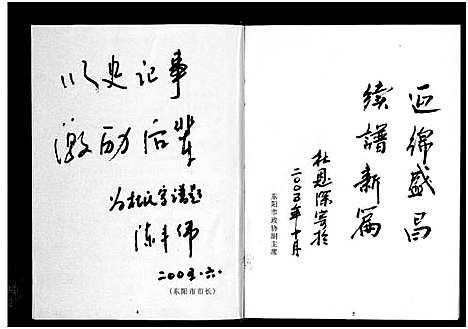 以史记事
激励后辈
为杜氏宗谱题
陈丰伟
二〇〇五.六.
(东阳市市长)
4
延绵盛昌
续谱新篇
杜恩深寄於
二〇〇五年十月
东阳市政协副主席
5